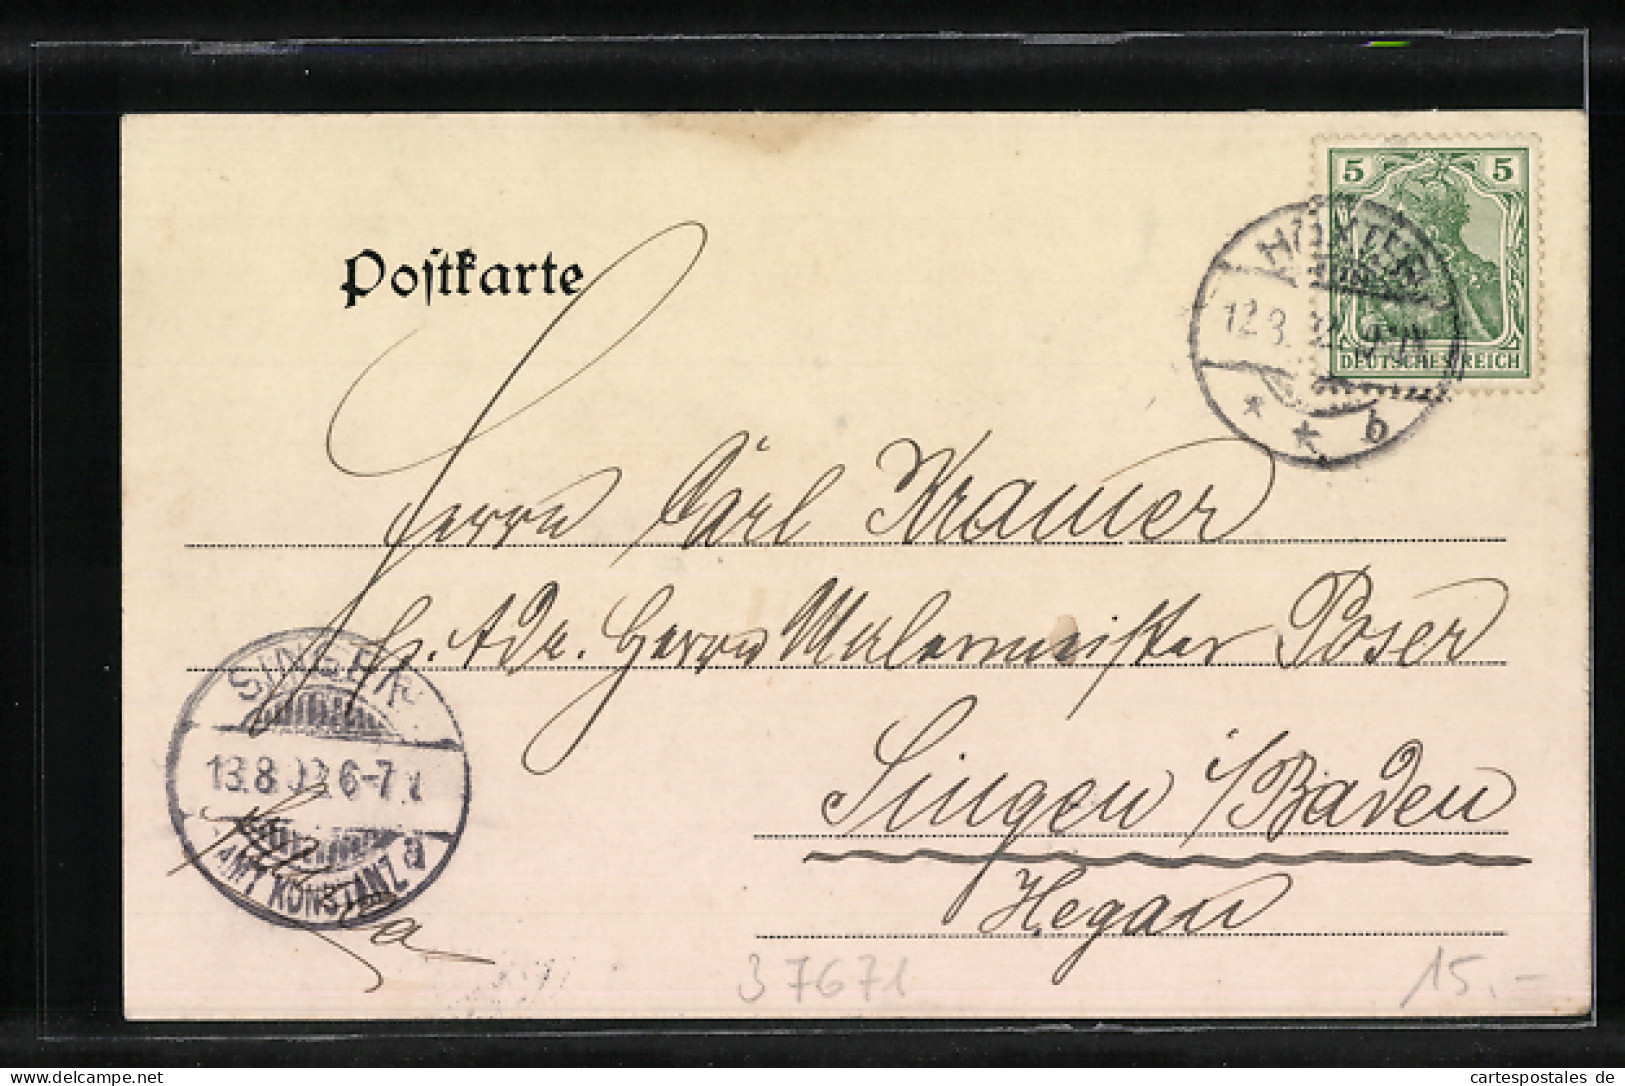 5 5
DEUTSCHES REICH
HÖXTER
12.8.02. 
* * b
Postkarte
Herrn Carl Kramer
p. Adr. Herrn Malermeister Poser
Singen i/Baden
Hegau
SINGEN
13.8.02. 6-7
AMT KONSTANZ a
37671
15.-
delcampe.net
cartespostales de